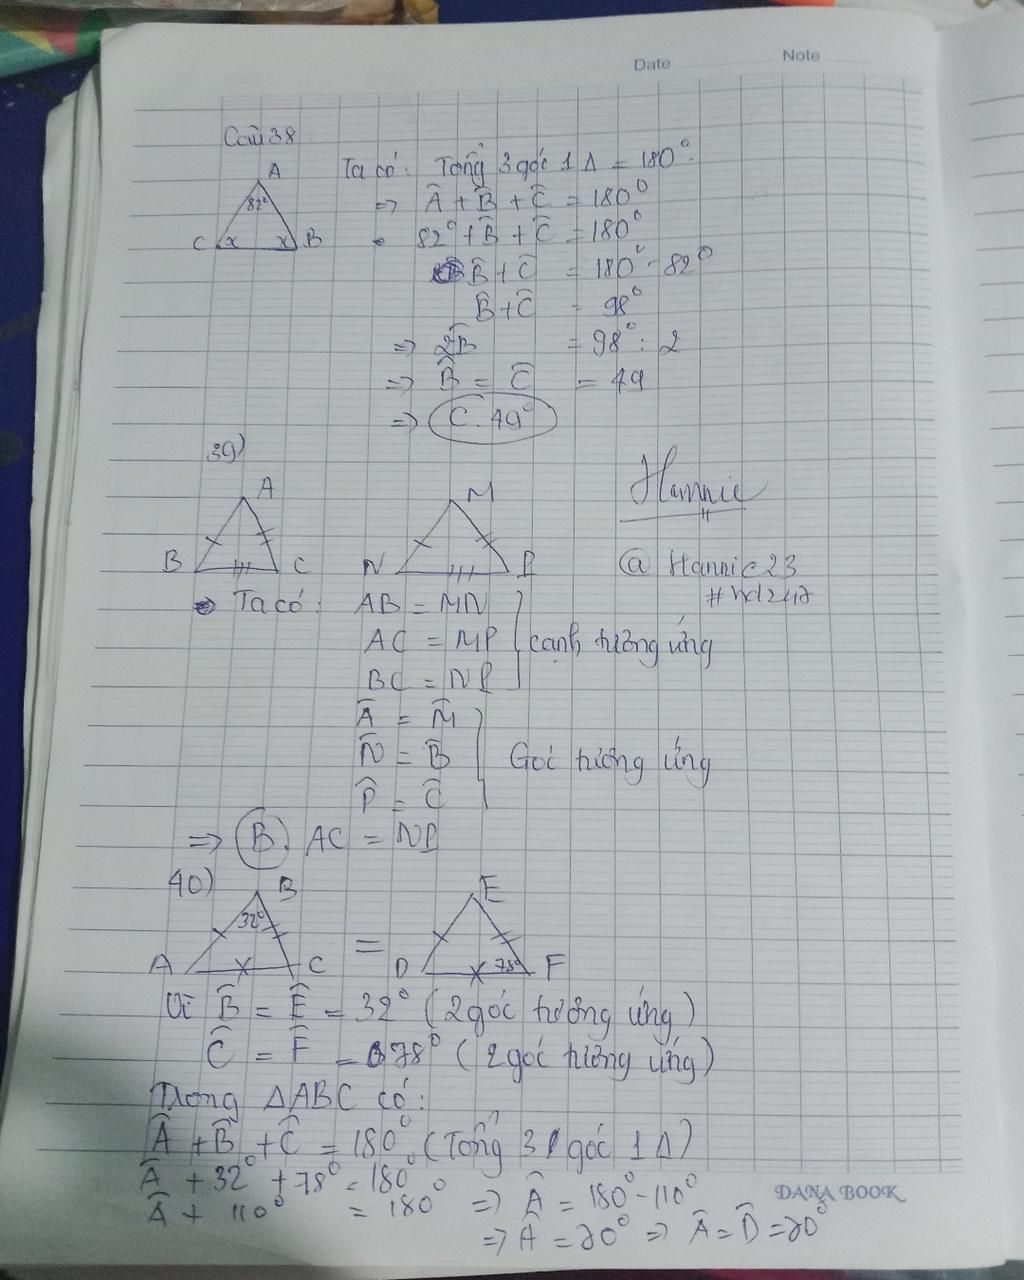 Date Note
Câu 38
A
82°
C x x B
Ta có: Tổng 3 góc 1 Δ = 180°.
=> Â + B̂ + Ĉ = 180°
82° + B̂ + Ĉ = 180°
B̂ + Ĉ = 180° - 82°
B̂ + Ĉ = 98°
=> 2B̂ = 98° : 2
=> B̂ = Ĉ = 49
=> C. 49°
39)
A M
B C N P
Hannie
@ Hannie23
Ta có: AB = MN
AC = MP
BC = NP
cạnh tương ứng
Â = M̂
N̂ = B̂
P̂ = Ĉ
Góc tương ứng
=> B. AC = NP
40)
B E
32°
=
A C D 78° F
Vì B̂ = Ê = 32° (2 góc tương ứng)
Ĉ = F̂ = 78° (2 góc tương ứng)
Trong ΔABC có:
Â + B̂ + Ĉ = 180° (Tổng 3 góc 1 Δ)
Â + 32° + 78° = 180°
Â + 110° = 180° => Â = 180° - 110°
=> Â = 70° => Â = D̂ = 70°
DANA BOOK